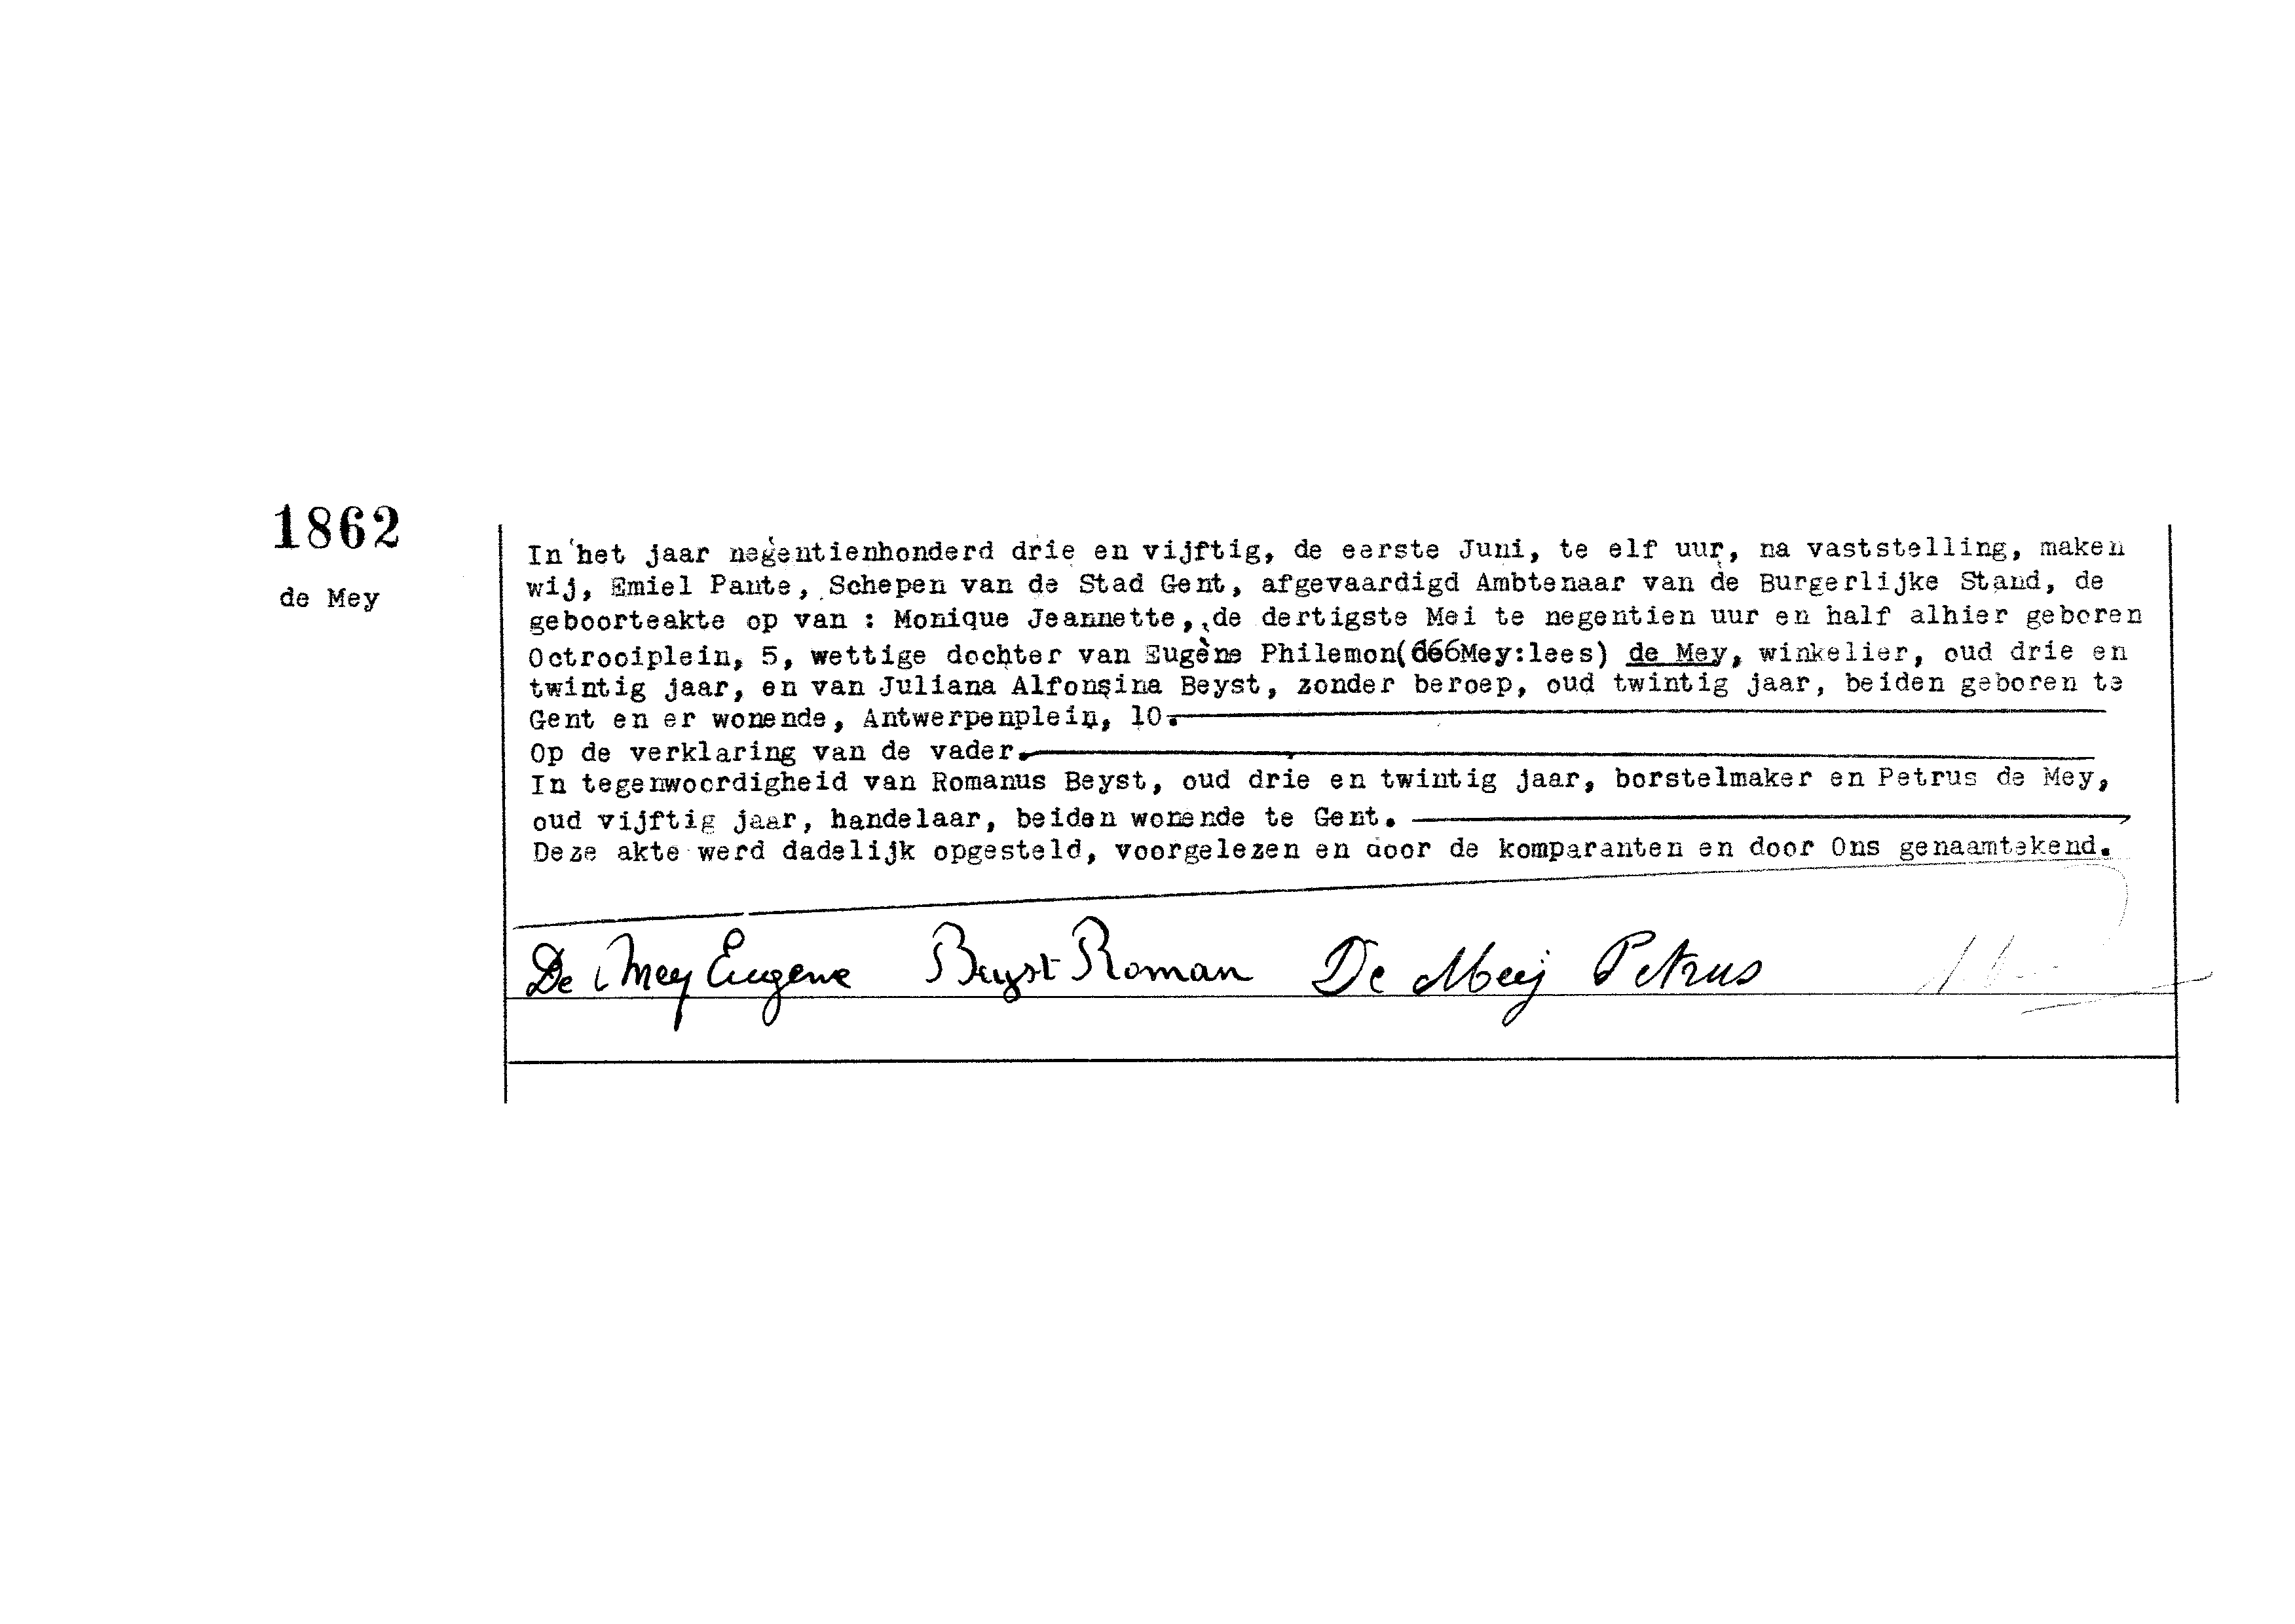 1862
de Mey
In het jaar negentienhonderd drie en vijftig, de eerste Juni, te elf uur, na vaststelling, maken
wij, Emiel Pante, Schepen van de Stad Gent, afgevaardigd Ambtenaar van de Burgerlijke Stand, de
geboorteakte op van : Monique Jeannette, de dertigste Mei te negentien uur en half alhier geboren
Octrooiplein, 5, wettige dochter van Eugène Philemon( Mey:lees) de Mey, winkelier, oud drie en
twintig jaar, en van Juliana Alfonsina Beyst, zonder beroep, oud twintig jaar, beiden geboren te
Gent en er wonende, Antwerpenplein, 10.
Op de verklaring van de vader.
In tegenwoordigheid van Romanus Beyst, oud drie en twintig jaar, borstelmaker en Petrus de Mey,
oud vijftig jaar, handelaar, beiden wonende te Gent.
Deze akte werd dadelijk opgesteld, voorgelezen en door de komparanten en door Ons genaamtekend.
De Mey Eugene Beyst Roman De Meij Petrus